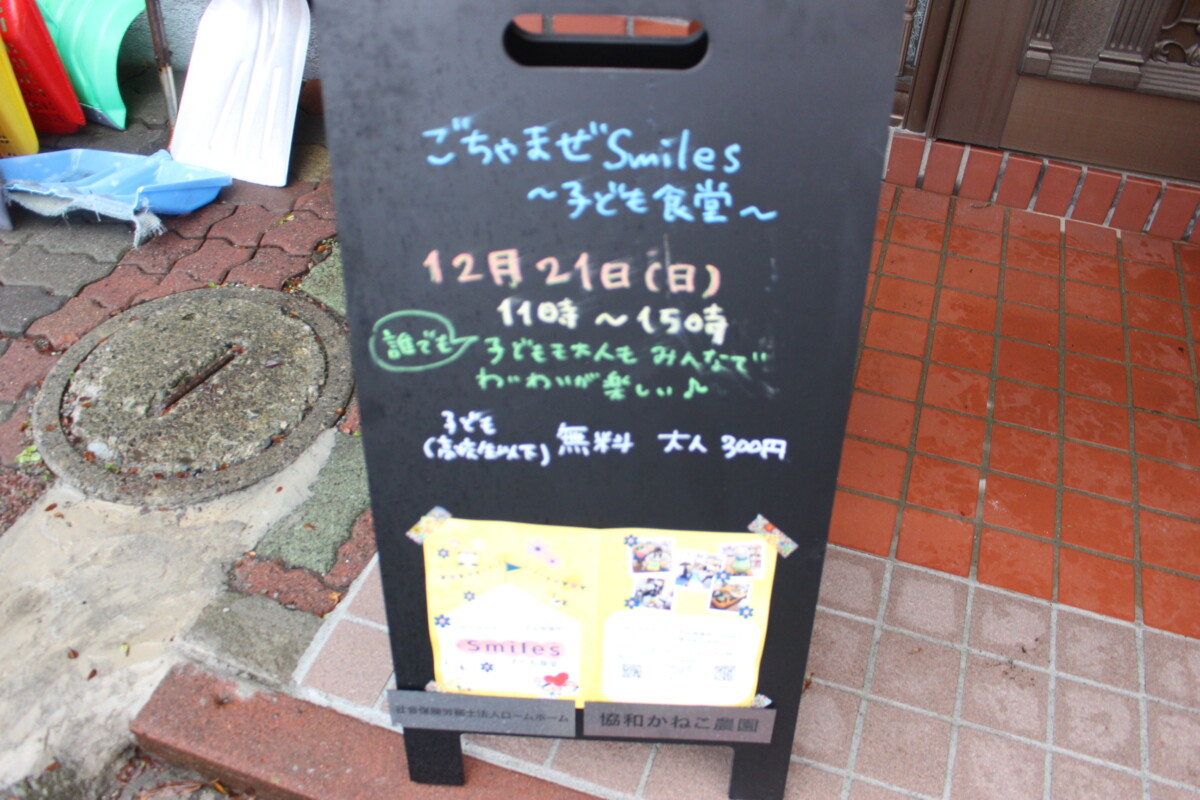 ごちゃまぜSmiles
～子ども食堂～
12月21日(日)
11時～15時
誰でも
子どもも大人もみんなで
わいわいが楽しい♪
子ども
(高校生以下) 無料 大人 300円
smiles
子ども食堂
社会保険労務士法人ロームホーム
協和かねこ農園